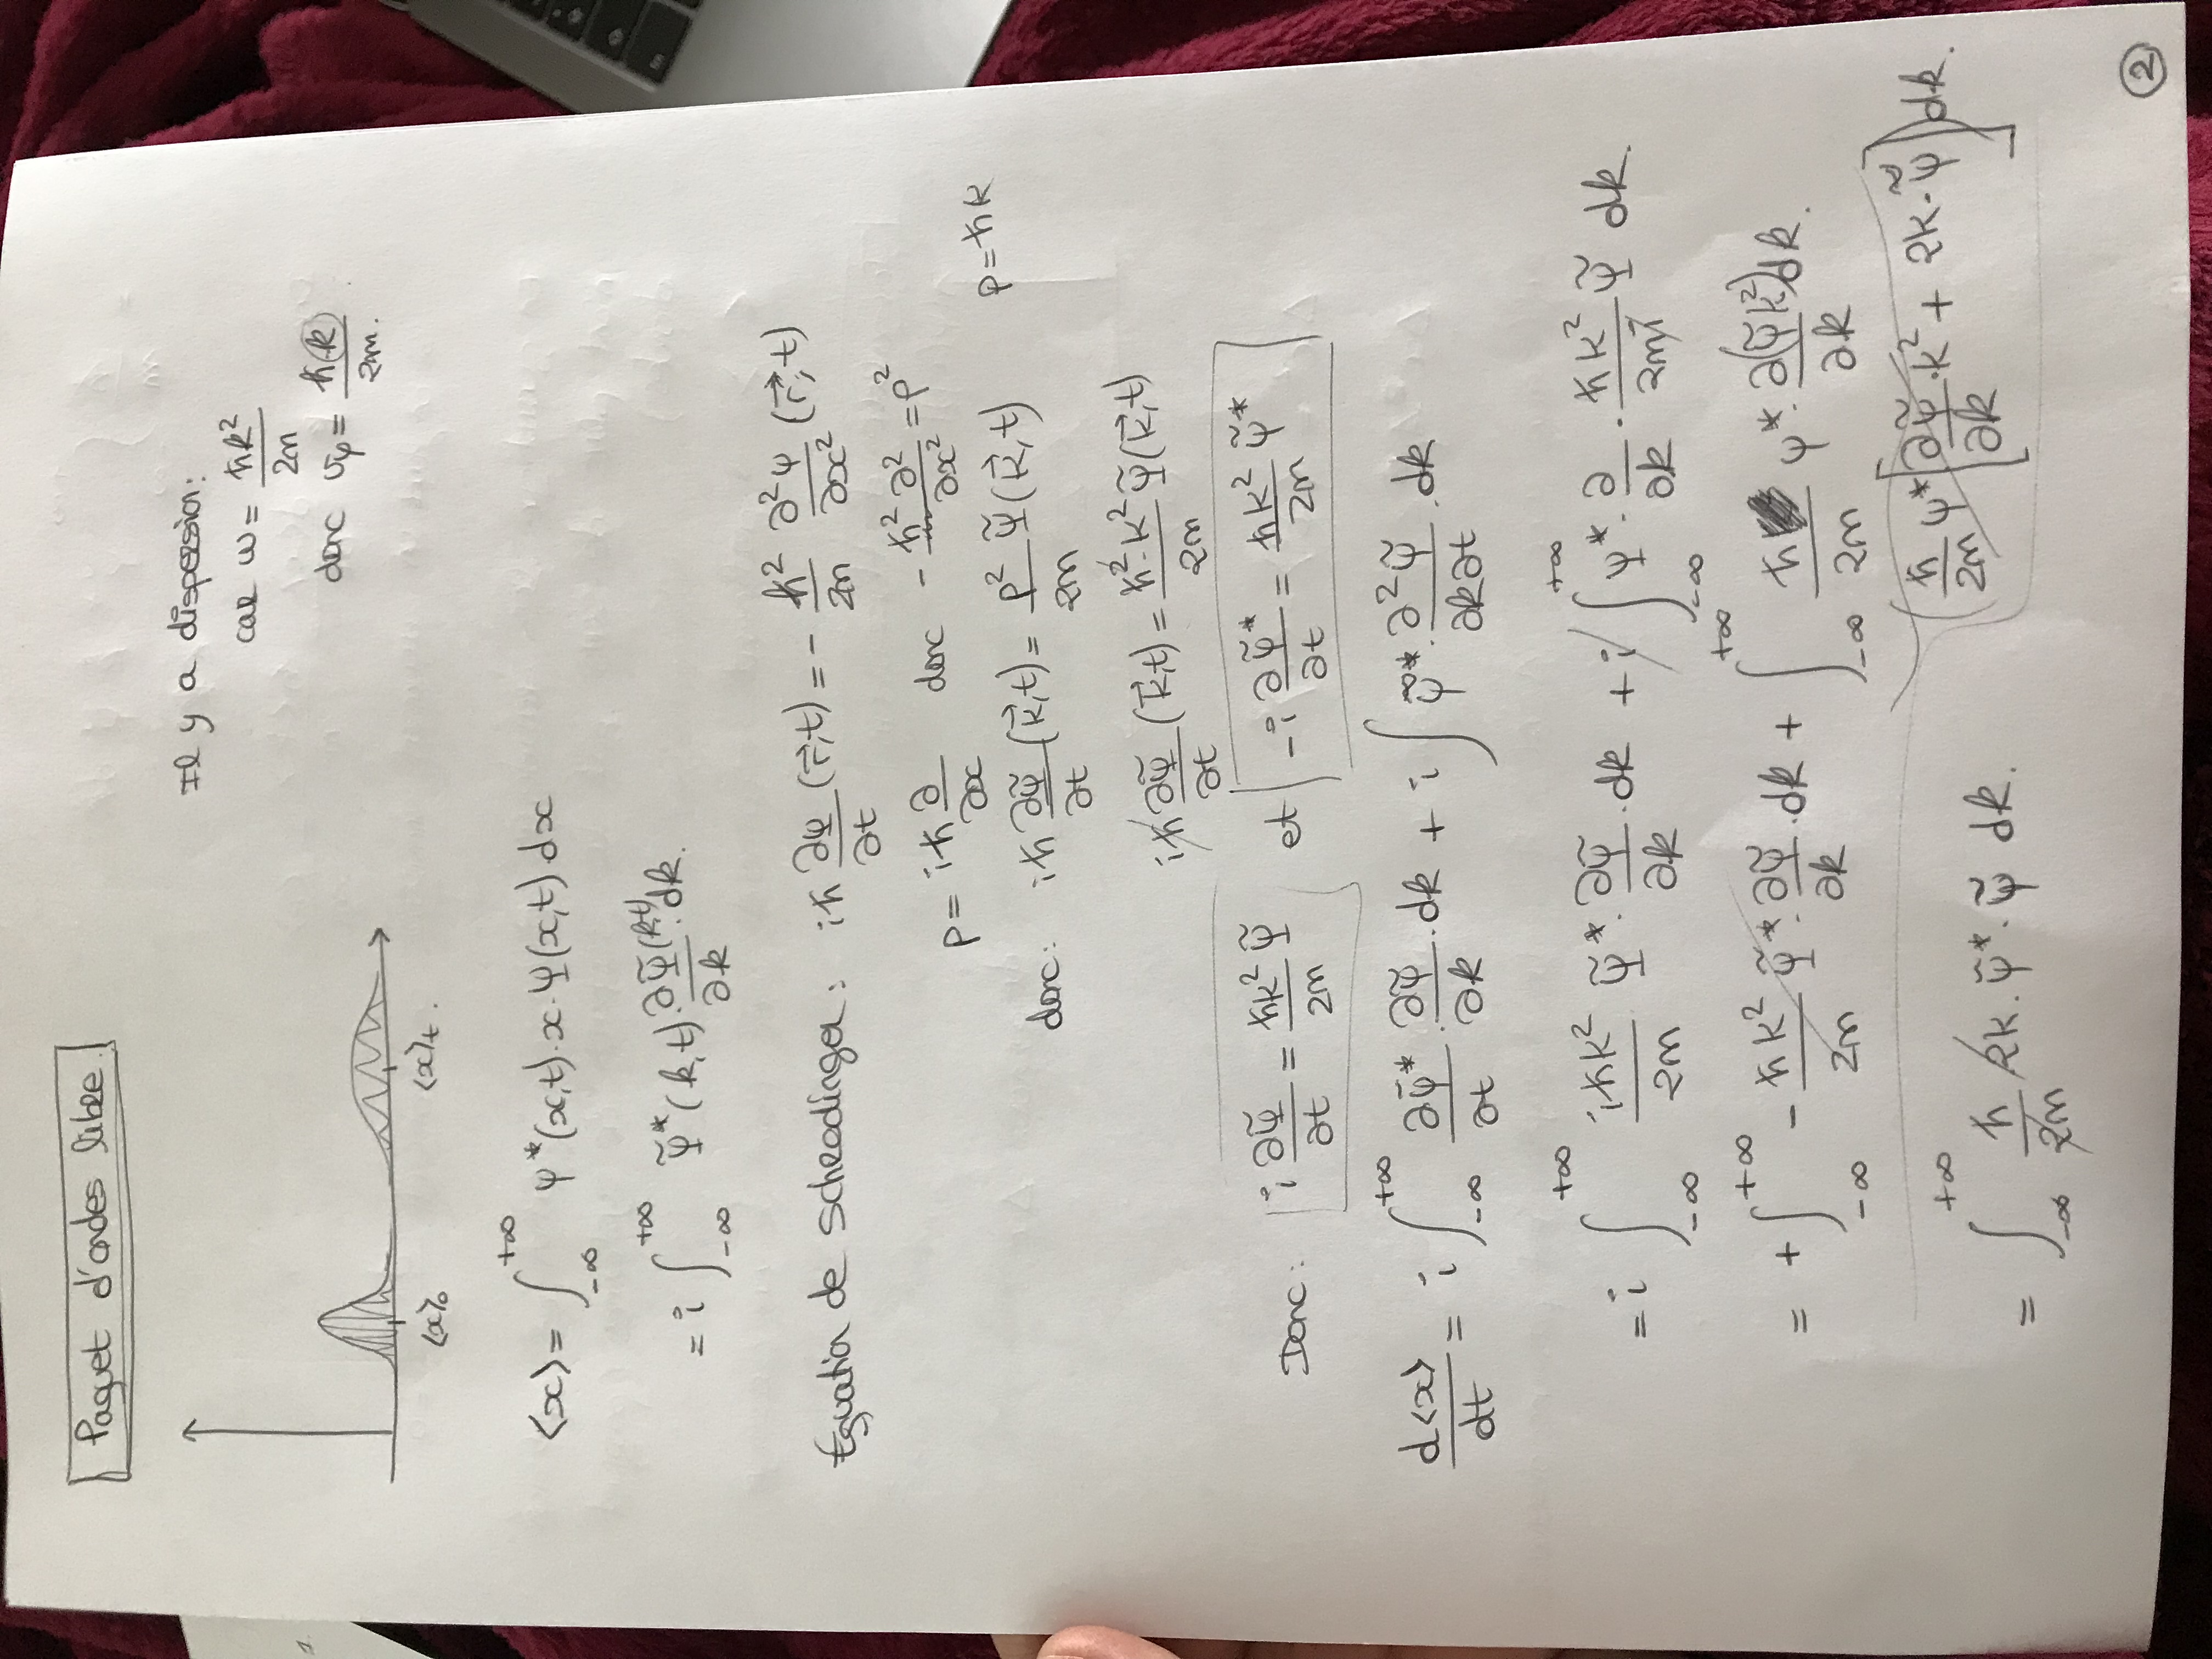 Paquet d'ondes libre.
Il y a dispersion:
car ω = ħk² / 2m
donc vφ = ħk / 2m.
⟨x⟩₀ ⟨x⟩t.
⟨x⟩ = ∫_{-∞}^{+∞} ψ*(x,t)·x·ψ(x,t)·dx
= i ∫_{-∞}^{+∞} ψ̃*(k,t)·∂ψ̃(k,t)/∂k·dk.
Equation de Schrodinger: iħ ∂ψ/∂t (r⃗,t) = - ħ²/2m ∂²ψ/∂x² (r⃗,t)
p = iħ ∂/∂x donc - ħ²∂²/∂x² = p²
donc: iħ ∂ψ̃/∂t (k⃗,t) = p²/2m ψ̃(k⃗,t) p = ħk
iħ ∂ψ̃/∂t (k⃗,t) = ħ²·k²/2m ψ̃(k⃗,t)
Donc: i ∂ψ̃/∂t = ħk²/2m ψ̃ et -i ∂ψ̃*/∂t = ħk²/2m ψ̃*
d⟨x⟩/dt = i ∫_{-∞}^{+∞} ∂ψ̃*/∂t · ∂ψ̃/∂k · dk + i ∫ ψ̃* · ∂²ψ̃/∂k∂t · dk
= i ∫_{-∞}^{+∞} iħk²/2m ψ̃* · ∂ψ̃/∂k · dk + i ∫_{-∞}^{+∞} ψ* · ∂/∂k · ħk²/2mi ψ̃ dk.
= + ∫_{-∞}^{+∞} - ħk²/2m ψ̃* · ∂ψ̃/∂k · dk + ∫_{-∞}^{+∞} ħ/2m ψ* · ∂(ψ̃k²)/∂k dk.
ħ/2m ψ* [∂ψ̃/∂k · k² + 2k · ψ̃] dk.
= ∫_{-∞}^{+∞} ħ/2m 2k · ψ̃* · ψ̃ dk.
2